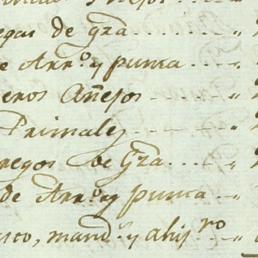 Añejos
egas de gza..... "
e Arr.º y puma... "
eros Añejos - - "
Primales...... "
regos de Gza... "
de Arr.º y puma.. "
uco, mand.º y ahij.ro "